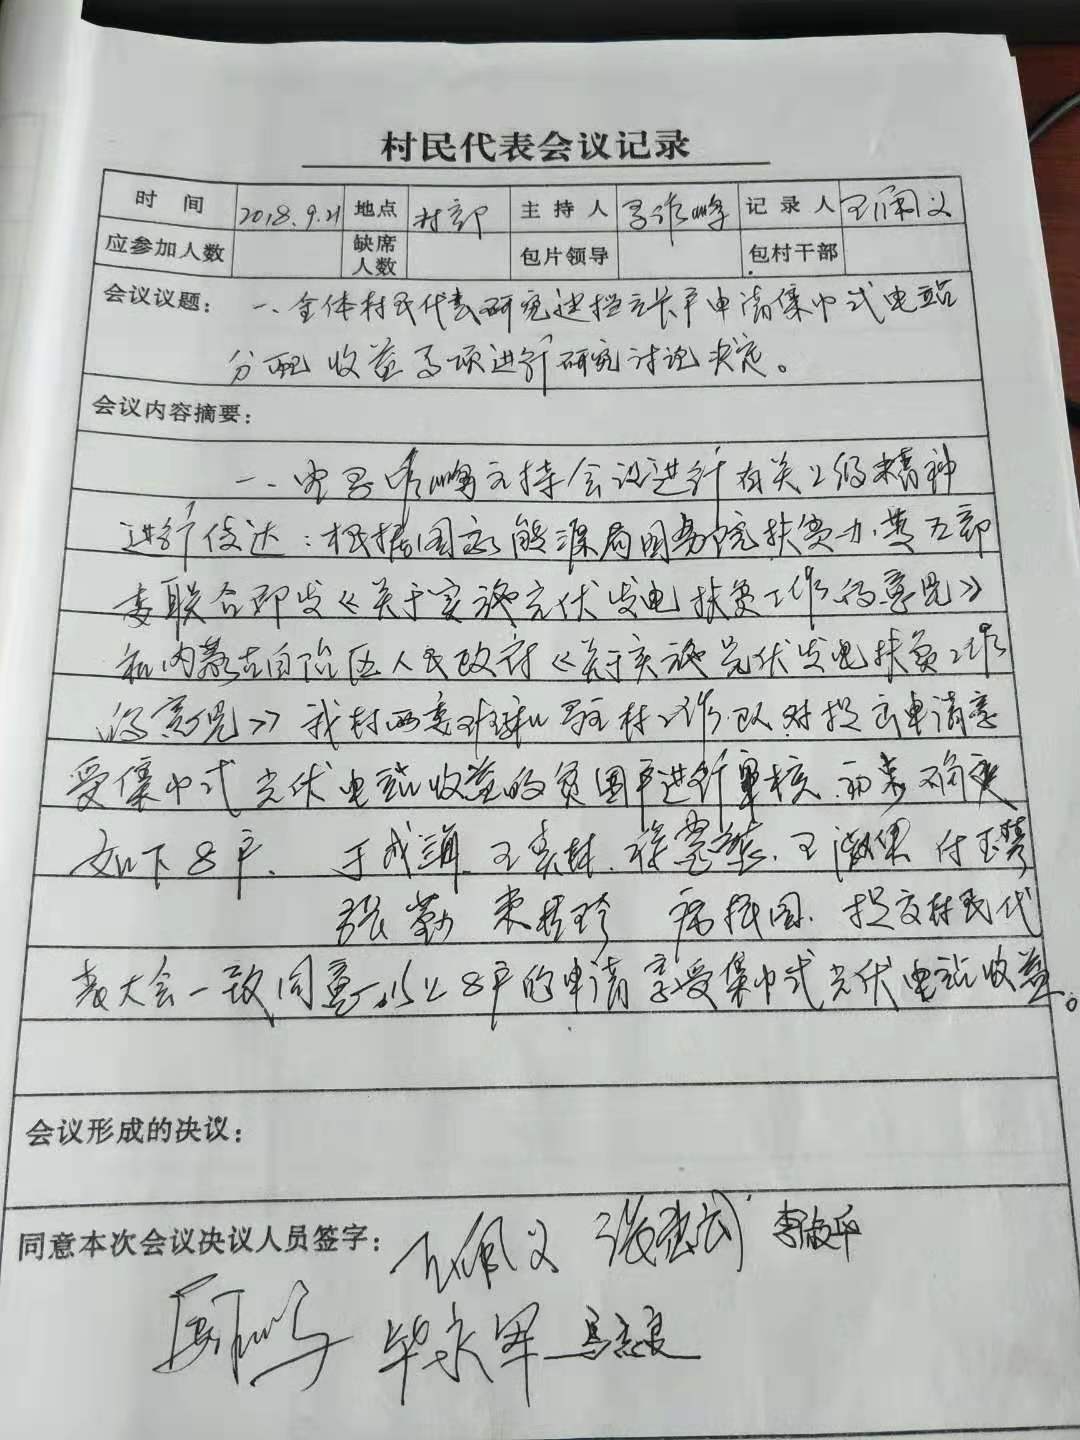 村民代表会议记录
时 间 2018.9.21 地点 村部 主 持 人 记 录 人 王佩义
应参加人数 缺席人数 包片领导 包村干部
会议议题: 一、全体村民代表研究建档立卡户申请集中式电站
分配收益事项进行研究讨论决定。
会议内容摘要:
一、由 峰主持会议进行有关上级精神
进行传达:根据国家能源局国务院扶贫办等五部
委联合印发《关于实施光伏发电扶贫工作的意见》
和内蒙古自治区人民政府《关于实施光伏发电扶贫工作
的意见》我村两委班和驻村工作队对提出申请享
受集中式光伏电站收益的贫困户进行审核、初步确定
如下8户、于成 王 林、徐 王淑 付玉琴
张勤 国、提交村民代
表大会一致同意以上8户的申请享受集中式光伏电站收益。
会议形成的决议:
同意本次会议决议人员签字: 王佩义 李
毕永军 马志良